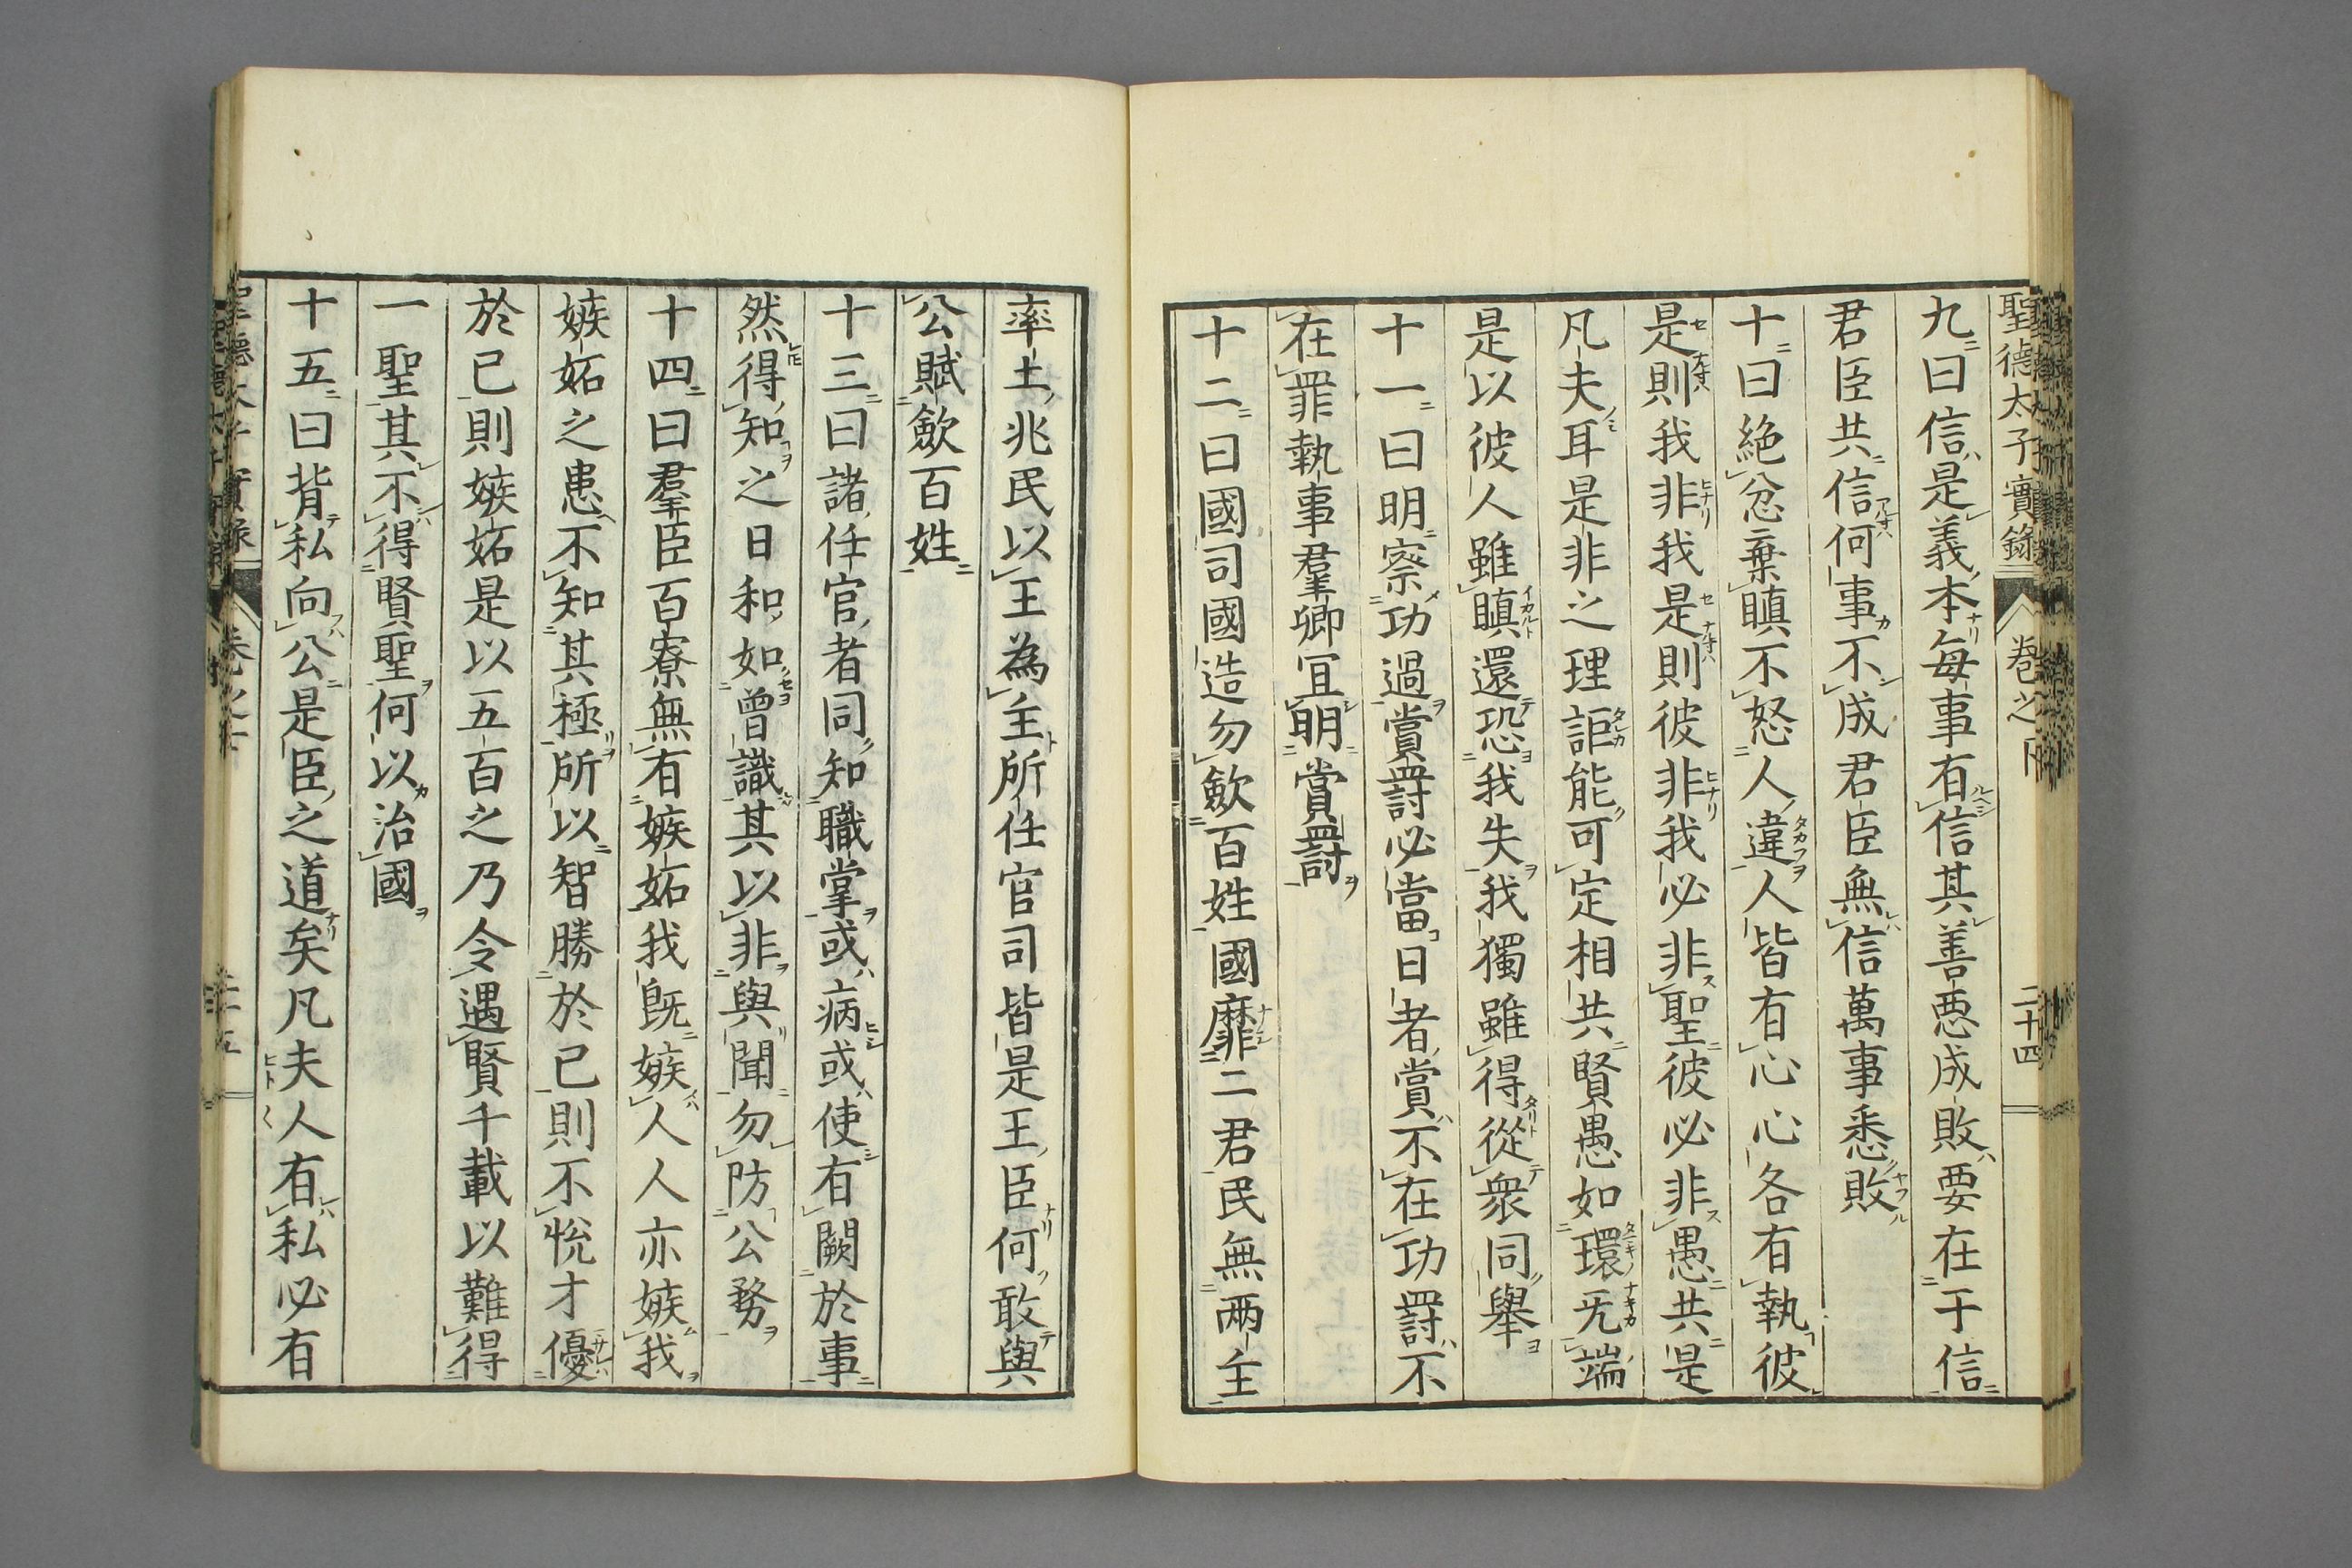 聖德太子實錄 卷之下 二十四
九曰信是義本每事有信其善惡成敗要在于信
君臣共信何事不成君臣無信萬事悉敗
十曰絶忿棄瞋不怒人違人皆有心心各有執彼
是則我非我是則彼非我必非聖彼必非愚共是
凡夫耳是非之理詎能可定相共賢愚如環无端
是以彼人雖瞋還恐我失我獨雖得從衆同舉
十一曰明察功過賞罸必當日者賞不在功罸不
在罪執事羣卿冝明賞罸
十二曰國司國造勿歛百姓國靡二君民無兩主
率土兆民以王為主所任官司皆是王臣何敢與
公賦歛百姓
十三曰諸任官者同知職掌或病或使有闕於事
然得知之日和如曾識其以非與聞勿防公務
十四曰羣臣百寮無有嫉妬我既嫉人人亦嫉我
嫉妬之患不知其極所以智勝於已則不悅才優
於已則嫉妬是以五百之乃令遇賢千載以難得
一聖其不得賢聖何以治國
十五曰背私向公是臣之道矣凡夫人有私必有